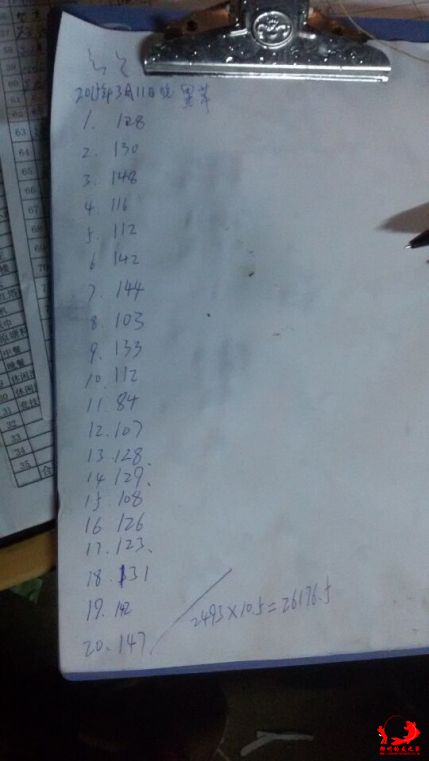 2015年3月11日晚
1. 128
2. 130
3. 148
4. 116
5. 112
6. 142
7. 144
8. 103
9. 133
10. 112
11. 84
12. 107
13. 128
14. 129
15. 108
16. 126
17. 123
18. 131
19. 142
20. 147
2493×10.5=26176.5